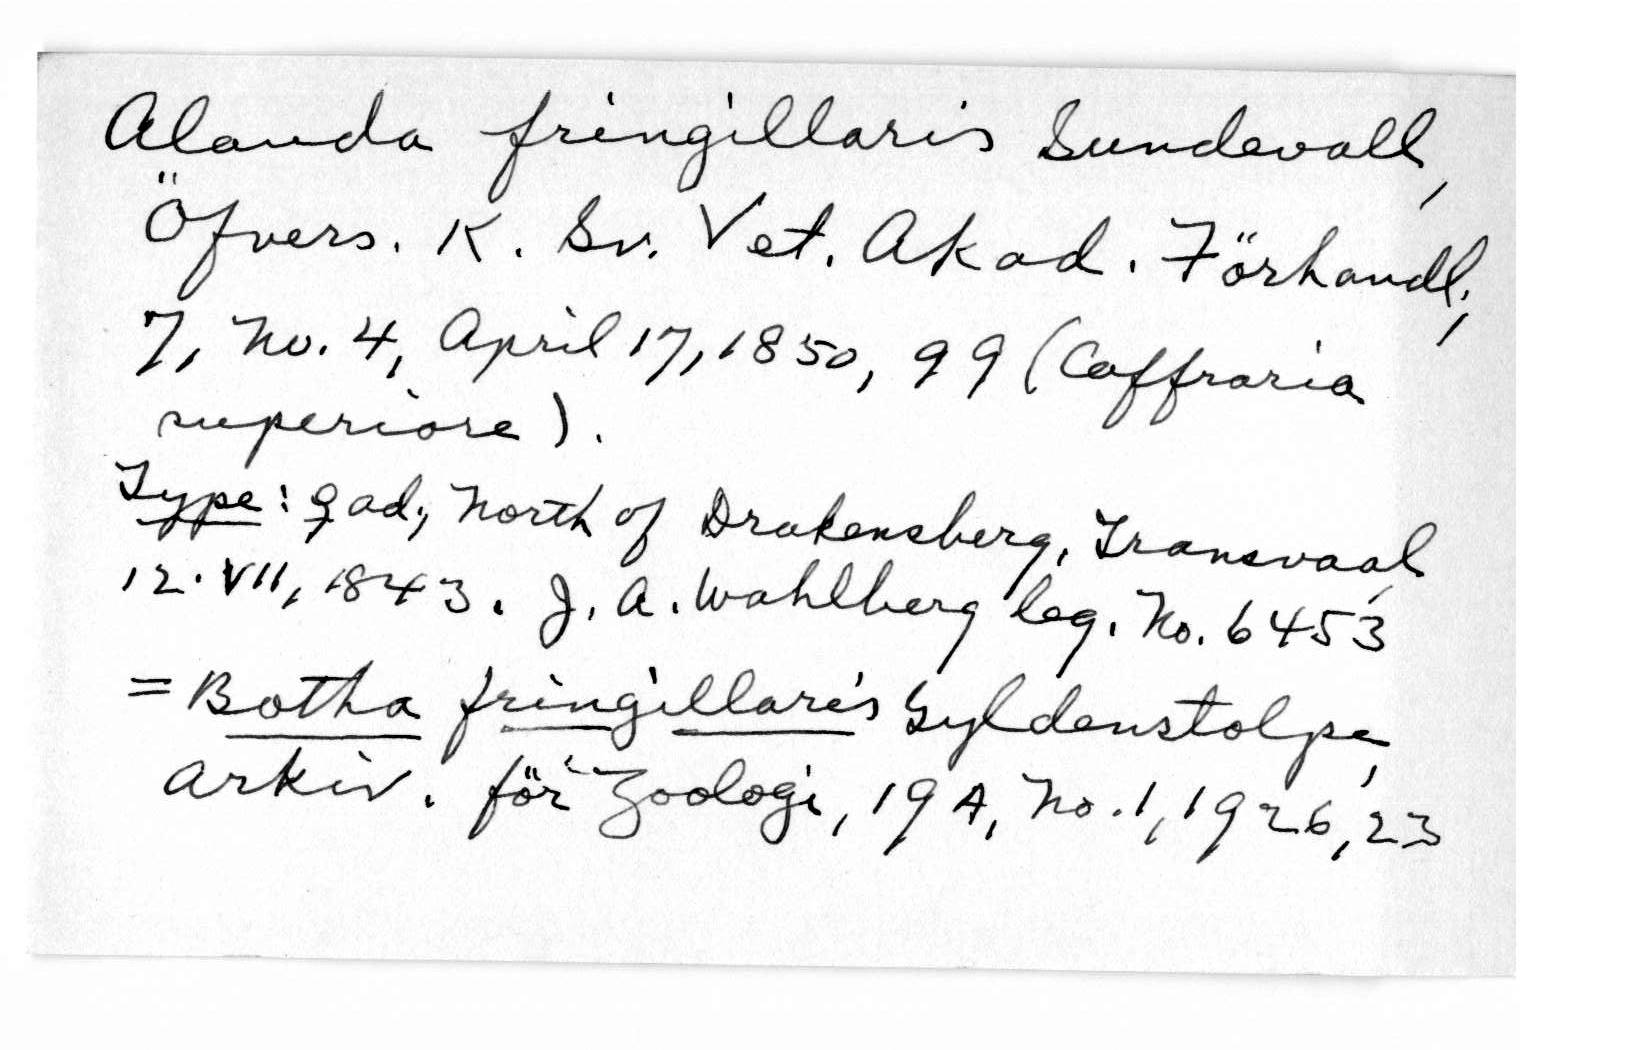 Alauda fringillaris Sundevall,
Öfvers. K. Sv. Vet. Akad. Förhandl.,
7, No. 4, April 17, 1850, 99 (Caffraria
superiore).
Type: ♀ ad., North of Drakensberg, Transvaal,
12.VII, 1843. J. A. Wahlberg leg. No. 6453
= Botha fringillaris Gyldenstolpe,
Arkiv. för Zoologi, 19A, No. 1, 1926, 23